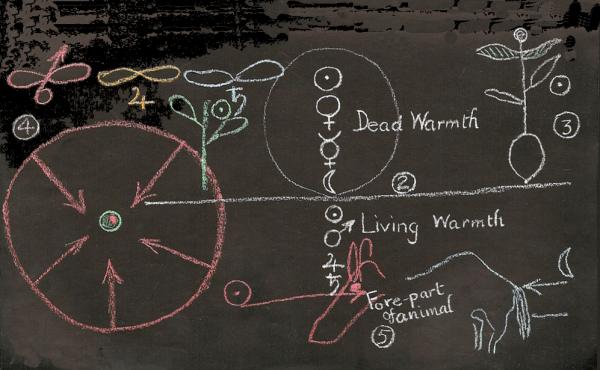 4
Dead Warmth
3
2
Living Warmth
Fore-part
of animal
5